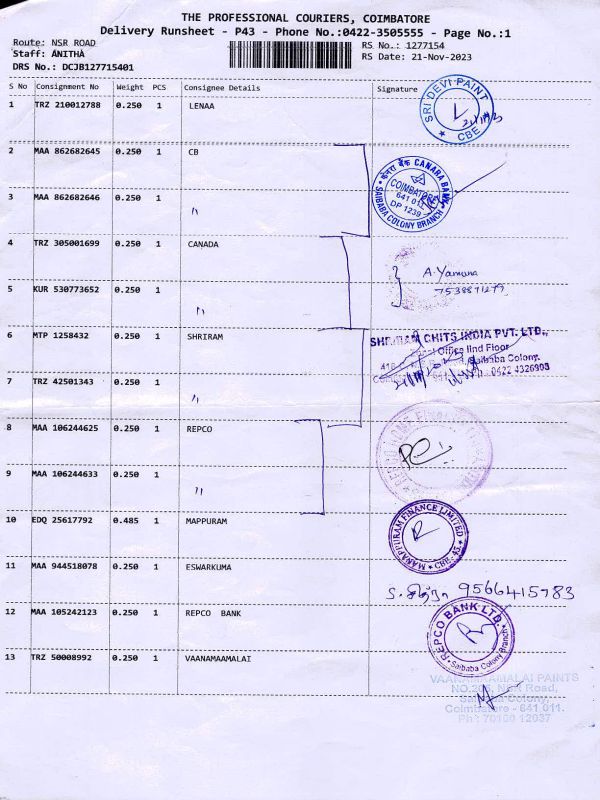 THE PROFESSIONAL COURIERS, COIMBATORE
Delivery Runsheet - P43 - Phone No.:0422-3505555 - Page No.:1
Route: NSR ROAD
RS No.: 1277154
Staff: ANITHA
RS Date: 21-Nov-2023
DRS No.: DCJB127715401
S No Consignment No Weight PCS Consignee Details Signature
1 TRZ 210012788 0.250 1 LENAA
SRI DEVI PAINT
CBE
2 MAA 862682645 0.250 1 CB
केनरा बैंक CANARA BANK
COIMBATORE
641 011
DP 1239
SAIBABA COLONY BRANCH
3 MAA 862682646 0.250 1 "
4 TRZ 305001699 0.250 1 CANADA
A. Yamuna
5 KUR 530773652 0.250 1 "
6 MTP 1258432 0.250 1 SHRIRAM
SHRIRAM CHITS INDIA PVT. LTD.,
Office IInd Floor
Saibaba Colony.
Ph : 0422 4326903
7 TRZ 42501343 0.250 1 "
8 MAA 106244625 0.250 1 REPCO
9 MAA 106244633 0.250 1 "
10 EDQ 25617792 0.485 1 MAPPURAM
MANAPPURAM FINANCE LIMITED
CBE-43
11 MAA 944518078 0.250 1 ESWARKUMA
S. சித்ரா 9566415783
12 MAA 105242123 0.250 1 REPCO BANK
REPCO BANK LTD.
Saibaba Colony Branch
13 TRZ 50008992 0.250 1 VAANAMAAMALAI
VAANAMAAMALAI PAINTS
Road,
Saibaba Colony,
Coimbatore - 641 011.
Ph : 70100 12037